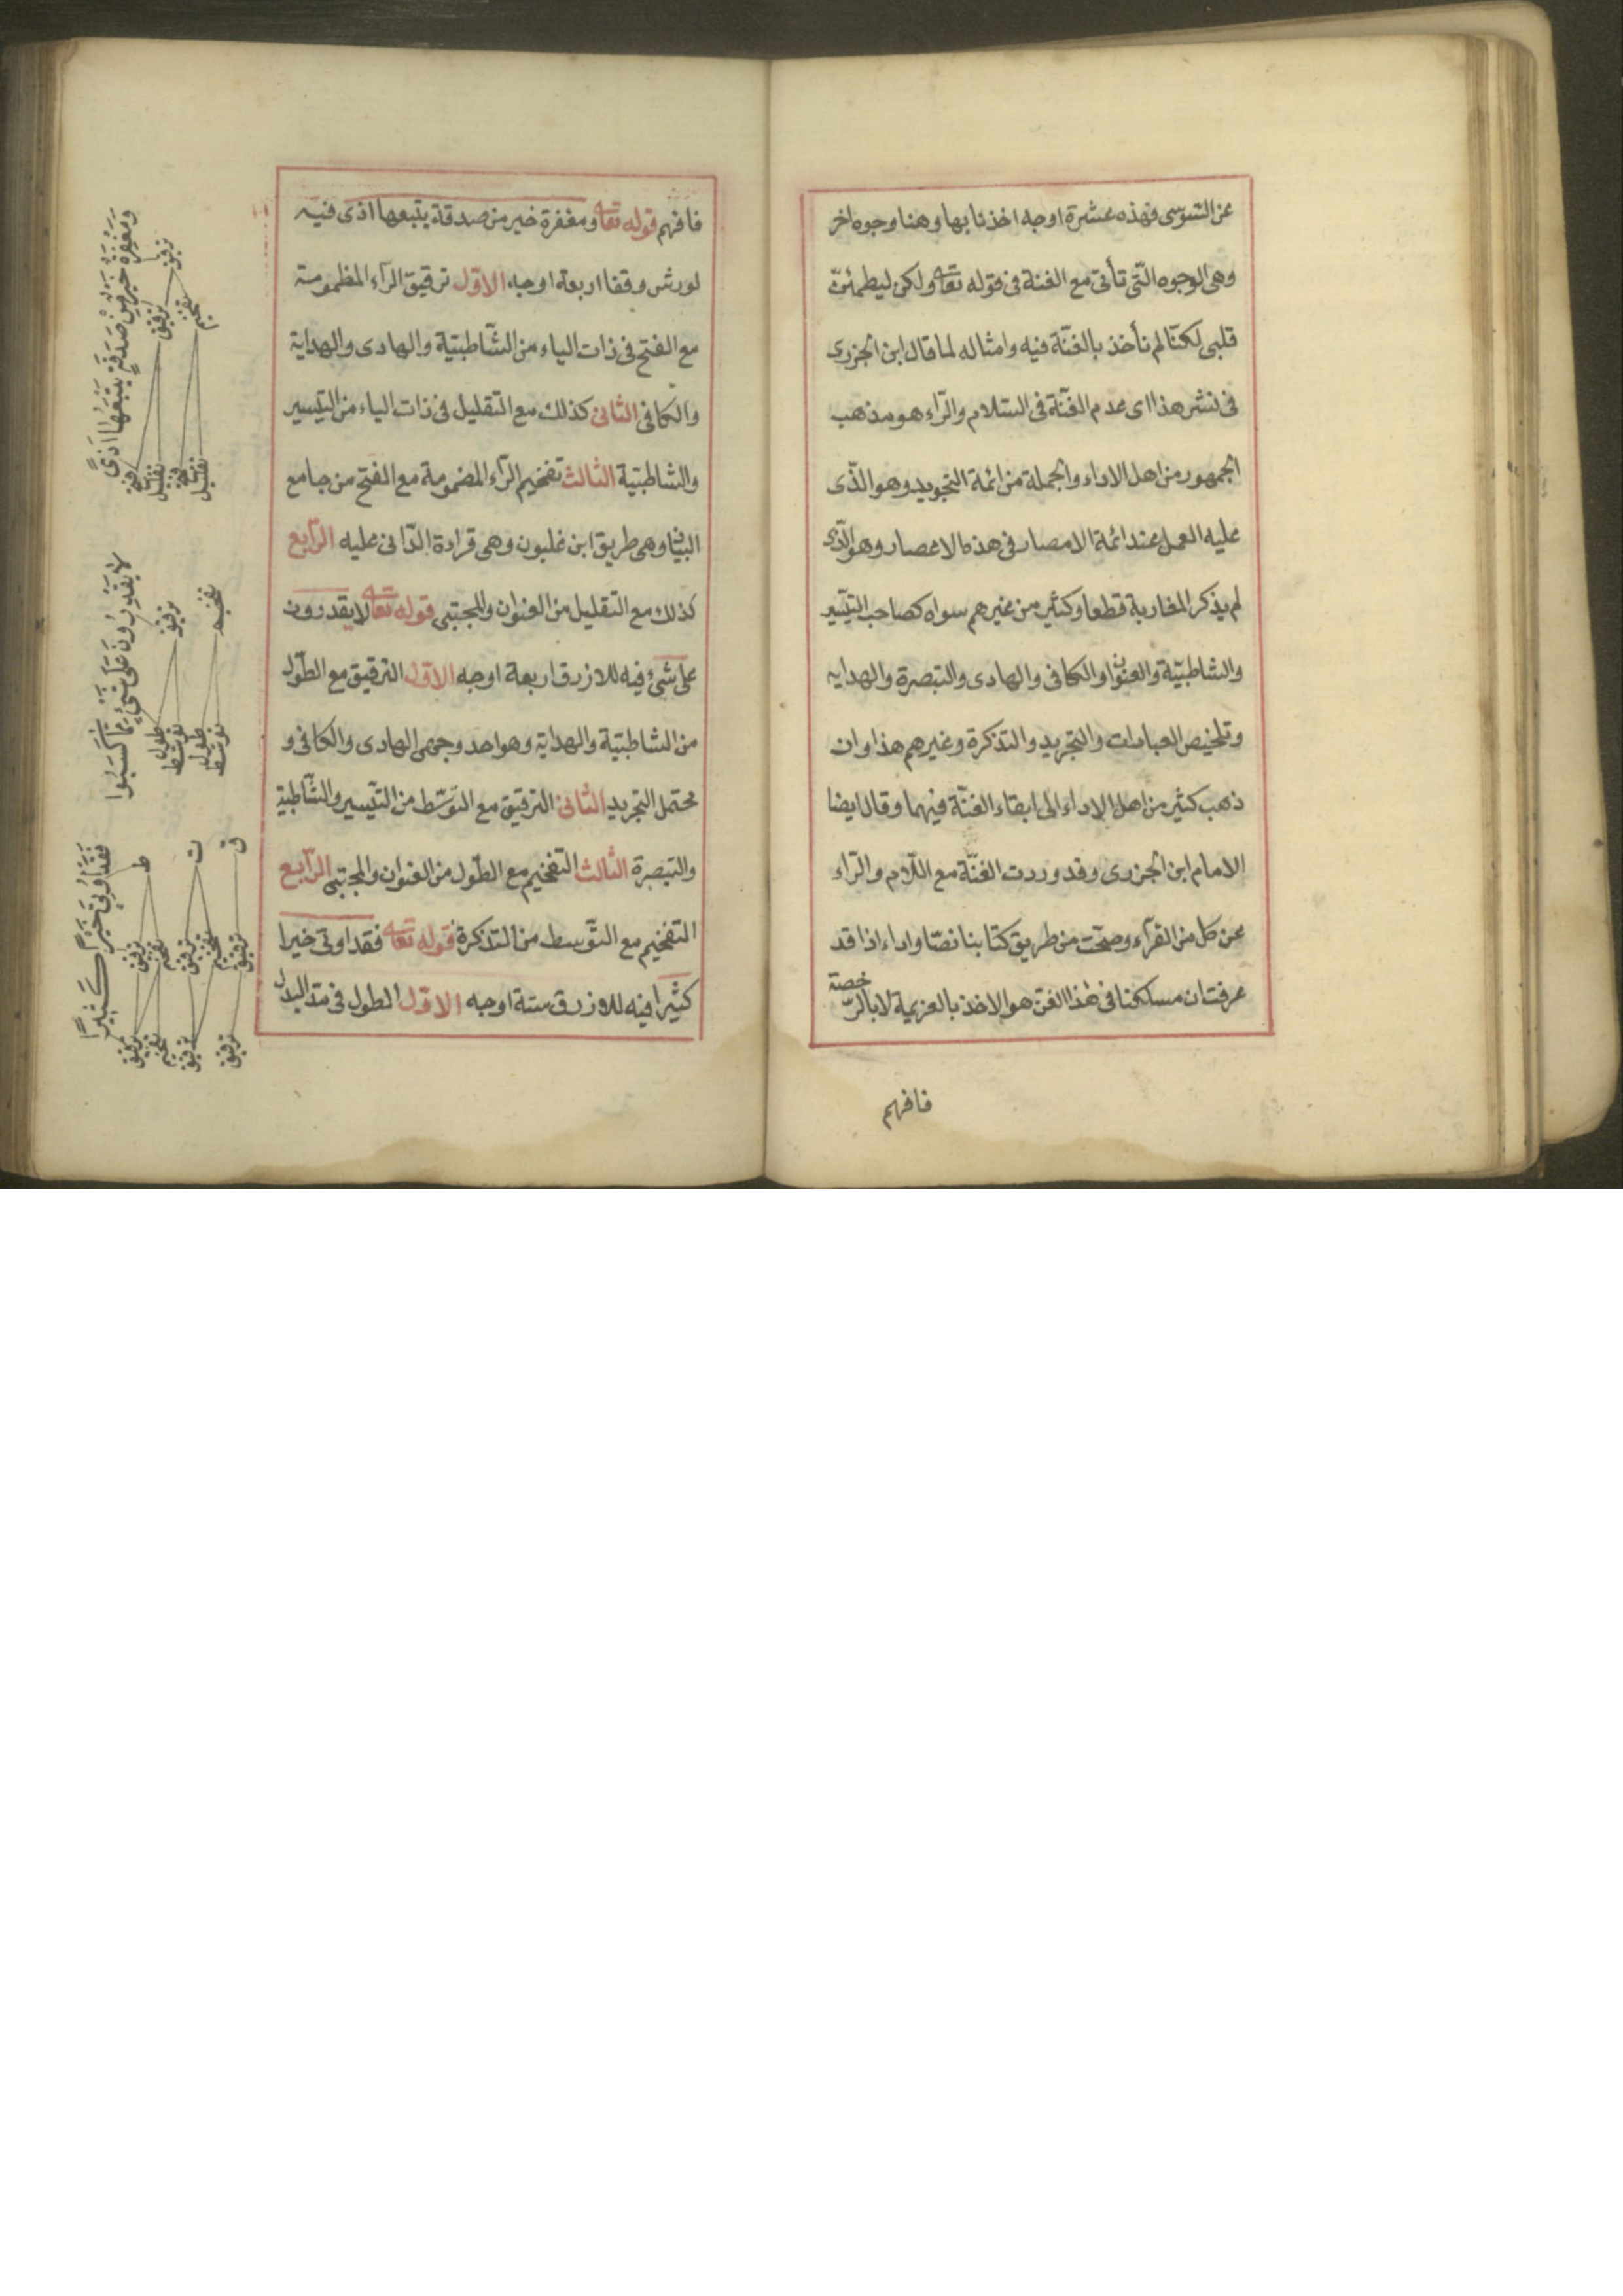 عن السّوسى فهذه عشرة اوجه اخذنا بها وهنا وجوه اخر
وهى الوجوه الّتى تأتى مع الغنة فى قوله تعا ولكن ليطمئنّ
قلبى لكنّا لم نأخذ بالغنّة فيه وامثاله لما قال ابن الجزرى
فى نشر هذا اى عدم الغنّة فى السّلام والرّاء هو مذهب
الجمهور من اهل الاداء والجملة من ائمة التجويد وهو الذّى
عليه العمل عند ائمة الامصار فى هذه الاعصار وهو الّذى
لم يذكر المغاربة قطعا وكثير من غيرهم سواه كصاحب التيسير
والشاطبيّة والعنوان والكافى والهادى والتبصرة والهدايه
وتلخيص العبادات والتجريد والتذكرة وغيرهم هذا وان
ذهب كثير من اهل الاداء الى ابقاء الغنّة فيهما وقال ايضا
الامام ابن الجزرى وقد وردت الغنّة مع اللّام والرّاء
عن كل من القرّاء وصحّت من طريق كتابنا نصّا واداء اذا قد
عرفت ان مسلكنا فى هٰذا الفنّ هو الاخذ بالعزيمة لا بالرّخصة
فافهم
فافهم قوله تعا ومغفرة خير من صدقة يتبعها اذى فيه
لورش وقفا اربعة اوجه الاوّل ترقيق الرآء المظمومة
مع الفتح فى ذات الياء من الشّاطبيّة والهادى والهداية
والكافى الثانى كذلك مع التقليل فى ذات الياء من التيسير
والشاطبيّة الثالث تفخيم الرّاء المضمومة مع الفتح من جامع
البيان وهى طريق ابن غلبون وهى قراءة الدّانى عليه الرّابع
كذلك مع التقليل من العنوان والمجتبى قوله تعا لا يقدرون
على شىء فيه للازرق اربعة اوجه الاوّل الترقيق مع الطّول
من الشاطبيّة والهداية وهو احد وجهى الهادى والكافى و
محتمل التجريد الثانى الترقيق مع التوسّط من التّيسير والشّاطبية
والتبصرة الثالث التفخيم مع الطّول من العنوان والمجتبى الرّابع
التفخيم مع التّوسط من التذكرة قوله تعا فقد اوتى خيرا
كثيرا فيه للازرق ستة اوجه الاوّل الطول فى مدّ البدل
وَمَغْفِرَةٌ خَيْرٌ مِنْ صَدَقَةٍ يَتْبَعُهَا اَذًى
ترقيق
ترقيق تفخيم
فتح تقليل فتح تقليل
لَا يَقْدِرُونَ عَلَى شَىْءٍ مِمَّا كَسَبُوا
ترقيق تفخيم
طول توسّط طول توسّط
فَقَدْ اُوتِىَ خَيْرًا كَثِيرًا
ط ت ق
ترقيق تفخيم ترقيق تفخيم ترقيق
ترقيق تفخيم ترقيق ترقيق